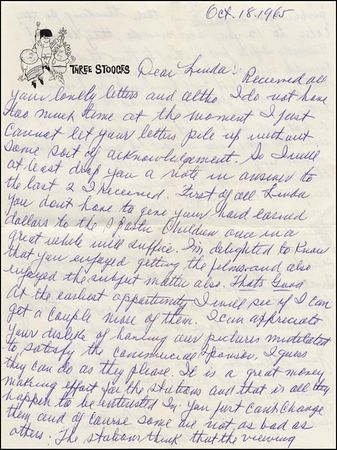 Oct. 18. 1965
THREE STOOGES
Dear Linda: Received all
your lovely letters and altho I do not have
too much time at the moment I just
cannot let your letters pile up without
some sort of acknowledgement. So I will
at least drop you a note in answer to
the last 2 I received. First of all Linda
you dont have to give your hard earned
dollars to the Children once in a
great while will suffice. I'm delighted to know
that you enjoyed getting the films and also
enjoyed the subject matter also. Thats Good
At the earliest opportunity I will see if I can
get a couple more of them. I can appreciate
your dislike of having our pictures mutilated
to satisfy the commercial sponsor. I guess
they can do as they please. It is a great money
making effort for the stations and that is all they
happen to be interested In. You just cant change
them and of course some are not as bad as
others. The stations think that the viewing